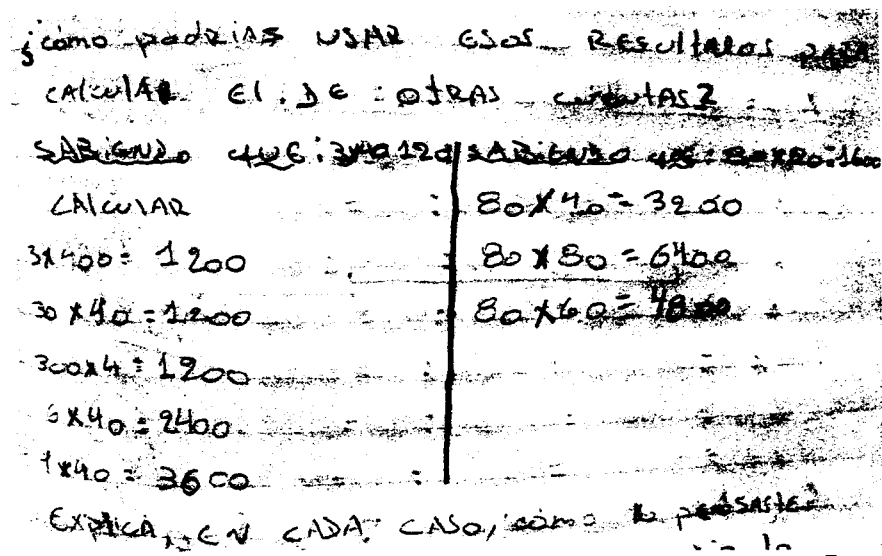 ¿cómo podRIAS USAR ESOS RESULTADOS PARA
CALCULAR El. DE OTRAS CUENTAS?
SABIENDO QUE: 3x40 120
CALCULAR
3x400= 1200
30 x40=1200
300x4= 1200
6x40=2400
x40= 3600
SABIENDO QUE: 80x20=1600
80x40=3200
80x80=6400
80x60=4800
EXPLICA, EN CADA CASO, cómo lo pensaste?